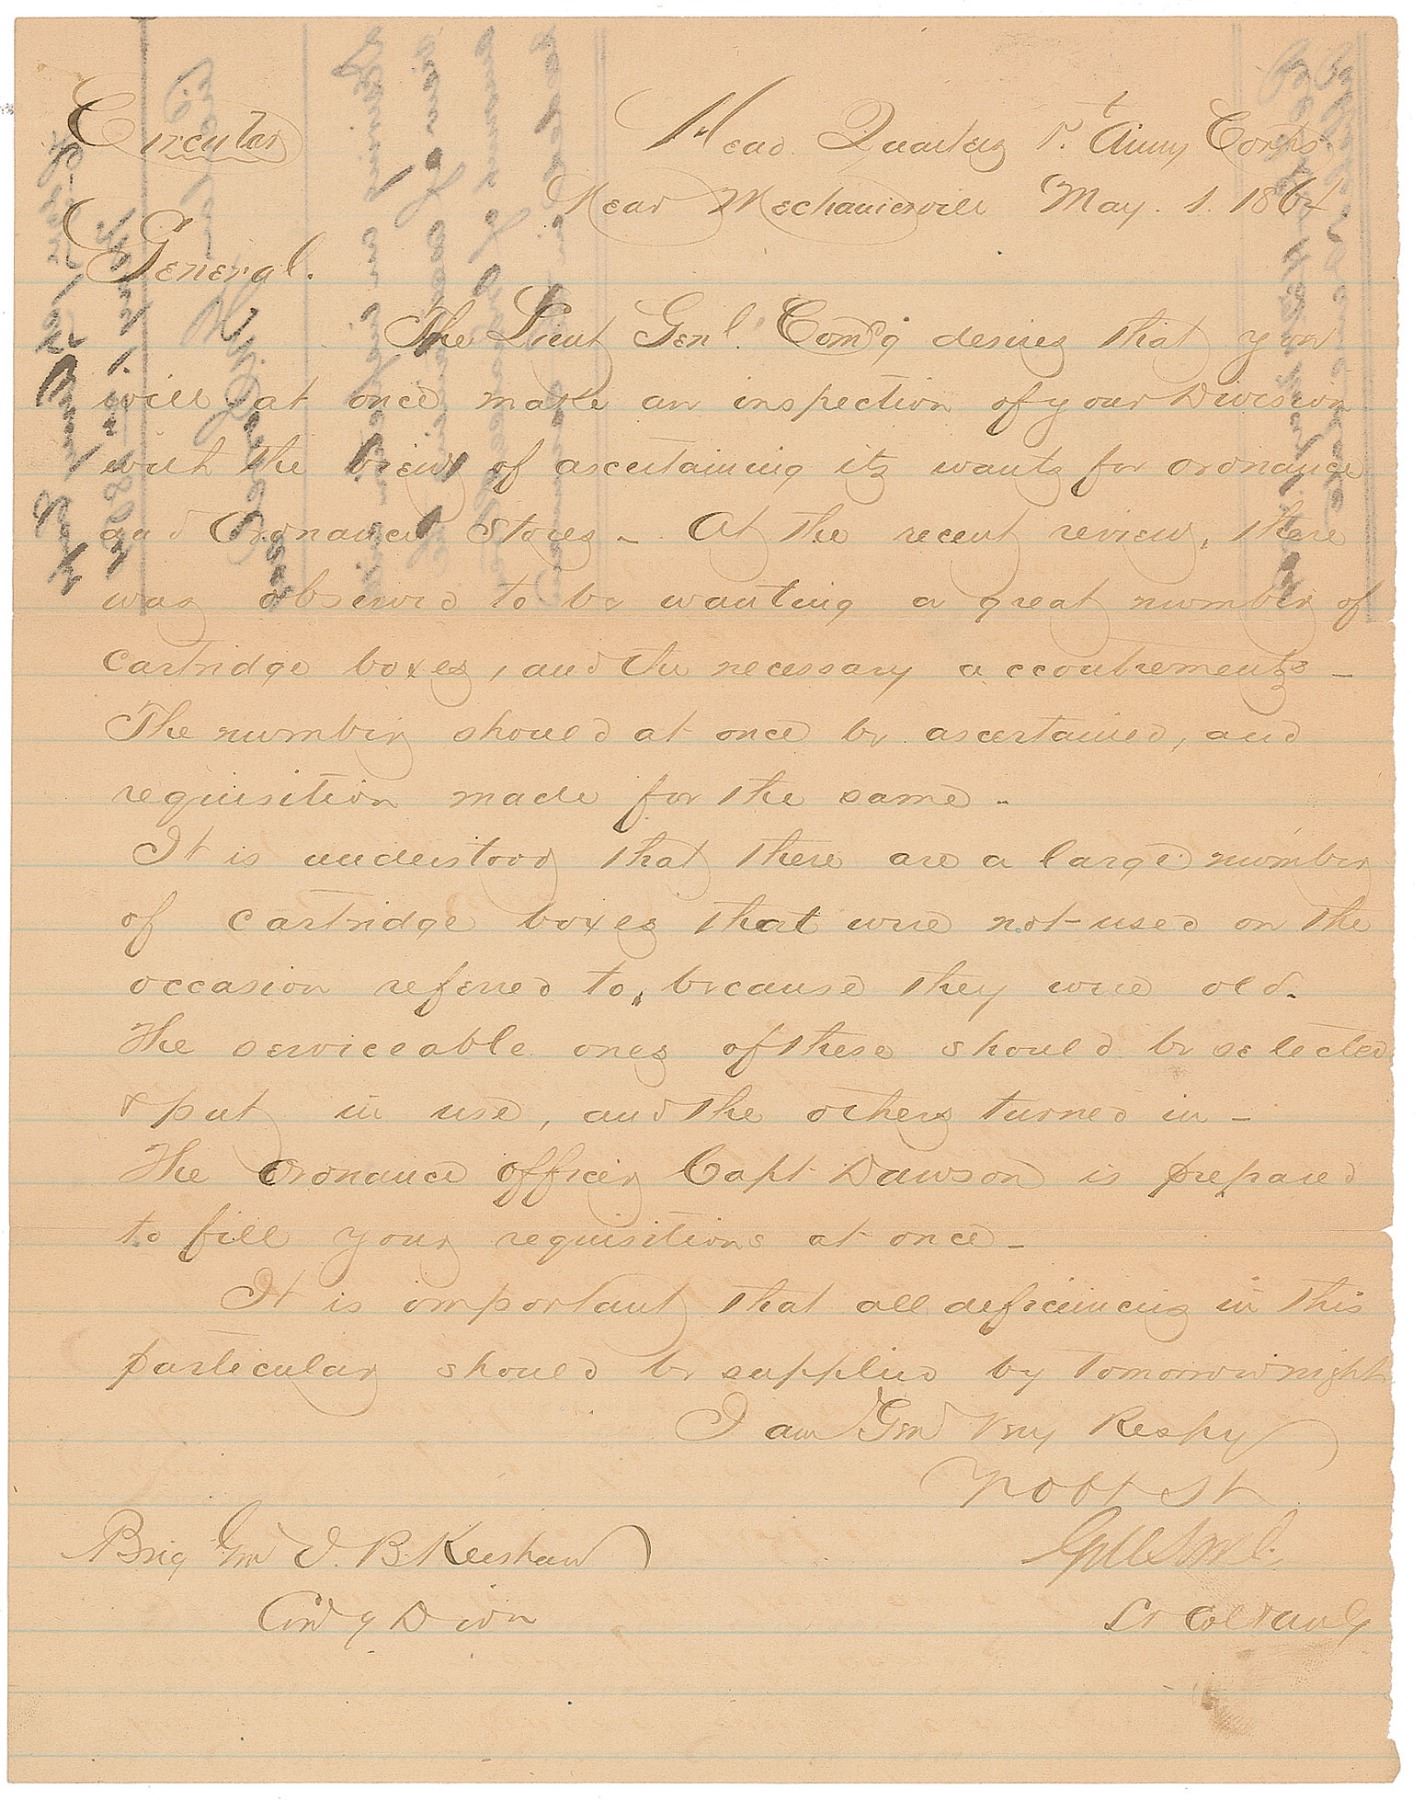 Circular
Head Quarters 1st Army Corps
Near Mechanicsville May. 1. 1864
General.
The Lieut Genl. Comd'g desires that you
will at once make an inspection of your Division
with the view of ascertaining its wants for ordnance
and Ordnance Stores - At the recent review, there
was observed to be wanting a great number of
cartridge boxes, and the necessary accoutrements -
The number should at once be ascertained, and
requisition made for the same -
It is understood that there are a large number
of cartridge boxes that were not used on the
occasion referred to, because they were old.
The serviceable ones of these should be selected
& put in use, and the others turned in -
The Ordnance officer Capt Dawson is prepared
to fill your requisitions at once -
It is important that all deficiencies in this
particular should be supplied by tomorrow night
I am Genl Very Respy
Yr Obt St
Brig Genl J. B Kershaw
Comdg Divn
Lt Col & AAG